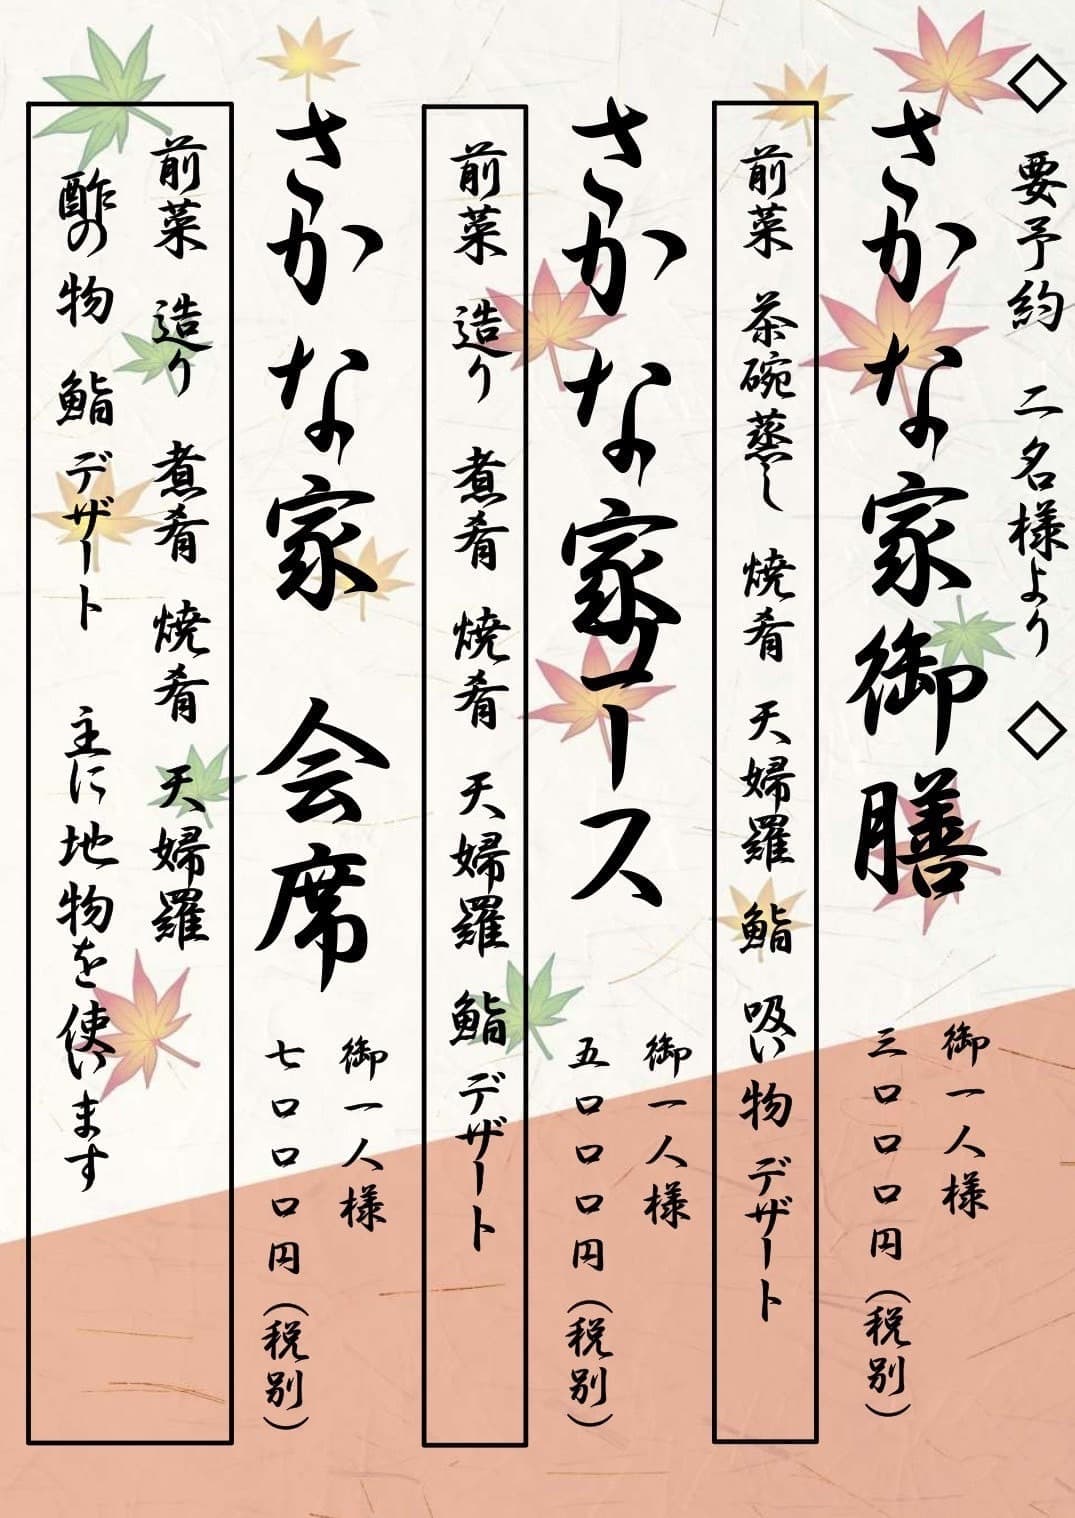 ◇ 要予約 二名様より ◇
さかな家御膳
御一人様
三口口口円（税別）
前菜 茶碗蒸し 焼肴 天婦羅 鮨 吸い物 デザート
さかな家コース
御一人様
五口口口円（税別）
前菜 造り 煮肴 焼肴 天婦羅 鮨 デザート
さかな家 会席
御一人様
七口口口円（税別）
前菜 造り 煮肴 焼肴 天婦羅
酢の物 鮨 デザート 主に地物を使います